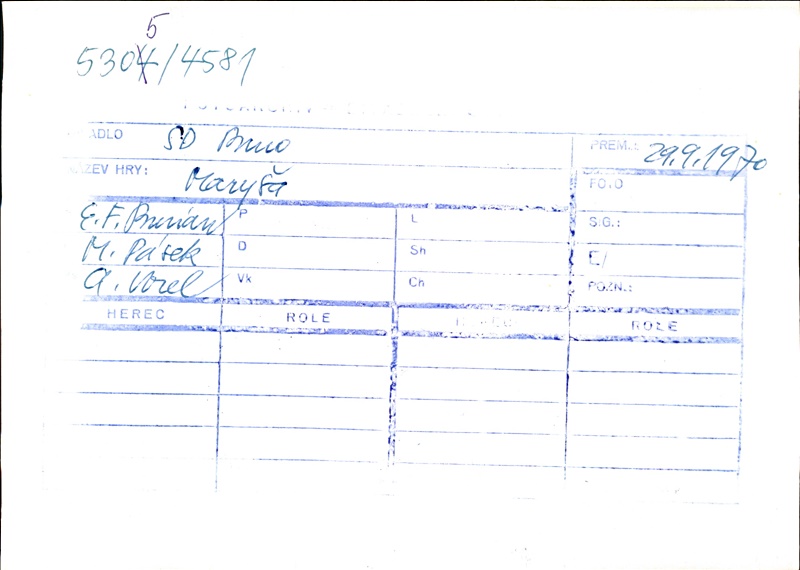 5305/4581
ADLO SD Brno PREM.: 29.9.1970
ZEV HRY: Maryša FO.O
E. F. Burian P L S.G.:
M. Pásek D Sh E/
A. Vorel Vk Ch POZN.:
HEREC ROLE HEREC ROLE